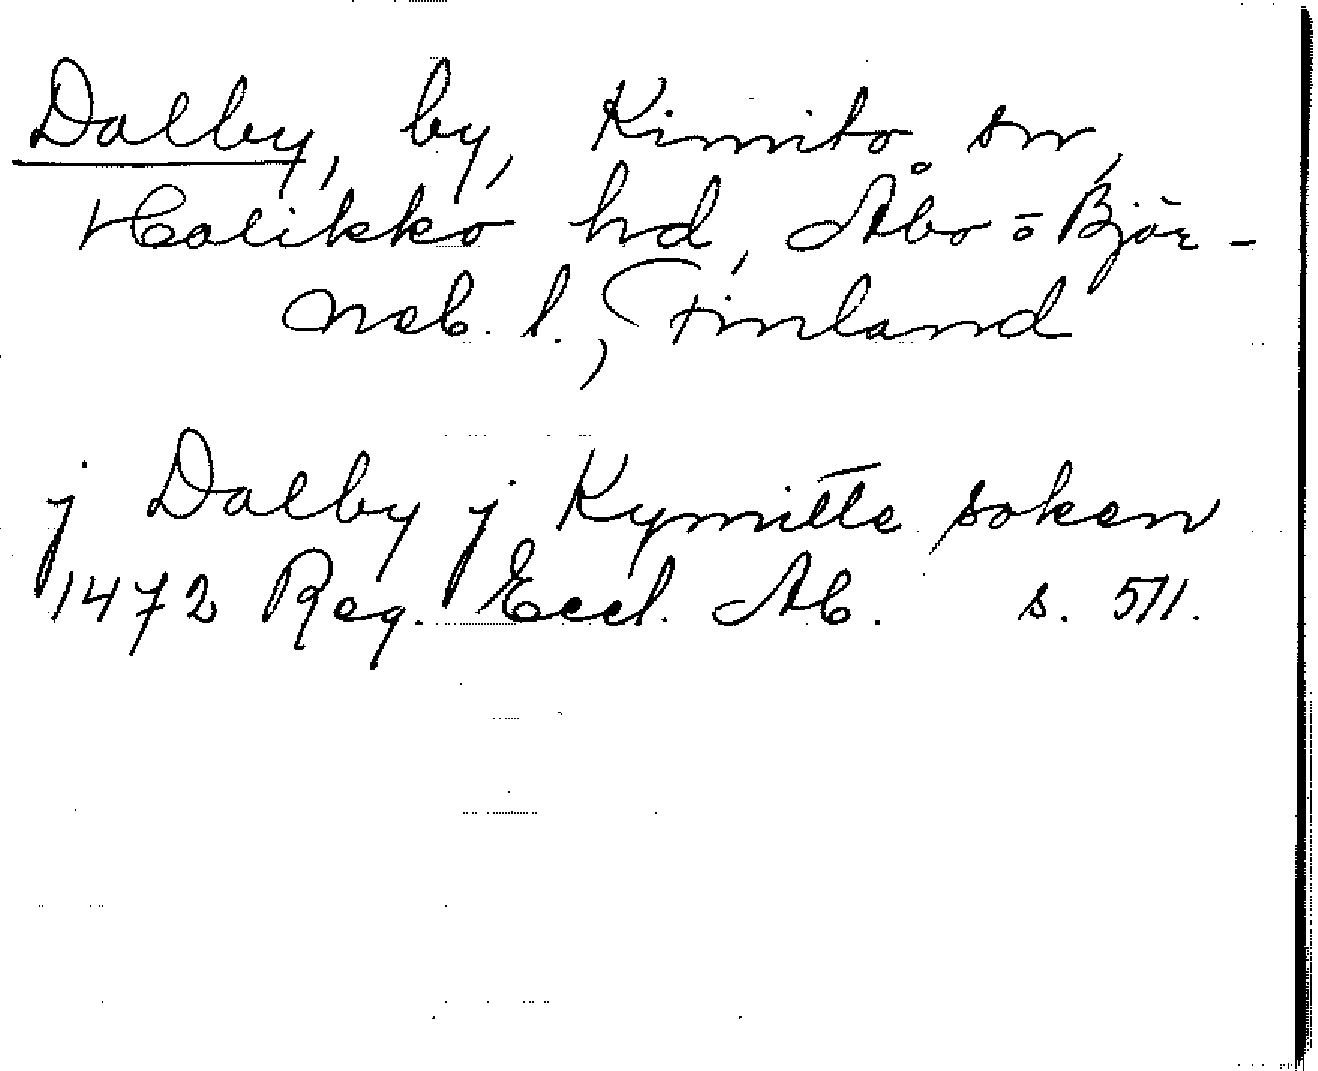 Dalby, by, Kimito sn,
Halikko hd, Åbo o Björ-
neb. l., Finland
j Dalby j Kymitte soken
1472 Reg. Eccl. Ab. s. 571.